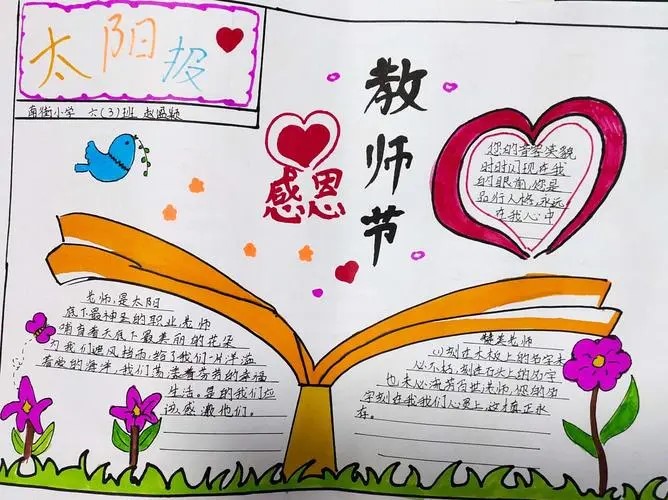 太阳报
南街小学 六(3)班
感恩
教师节
您的音容笑貌
时时闪现在我
的眼前,您是
品行人格,永远
在我心中
老师,是太阳
底下最神圣的职业,老师
哺育着天底下最美丽的花朵
为我们遮风挡雨,给了我们一片洋溢
着爱的海洋,我们荡漾着芳香的幸福
生活。是的我们应
该感激他们。
赞美老师
(1)刻在木板上的名字未
必不朽,刻在石头上的名字
也未必流芳百世,老师,您的名
字刻在我们心灵上,这才真正永
存。